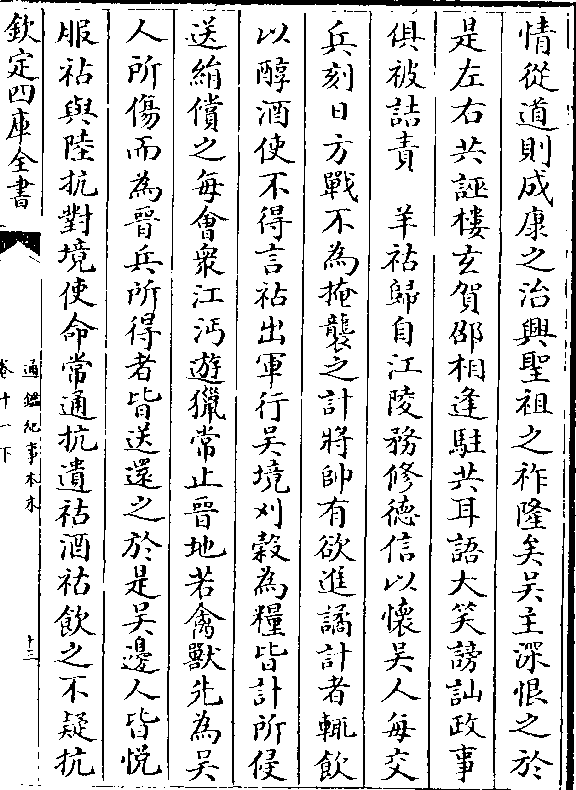 情從道則成康之治興聖祖之祚隆矣吳主深恨之於
是左右共誣樓玄賀邵相逢駐共耳語大笑謗訕政事
俱被詰責　羊祜歸自江陵務修德信以懷吳人每交
兵刻日方戰不為掩襲之計將帥有欲進譎計者輒飲
以醇酒使不得言祜出軍行吳境刈穀為糧皆計所侵
送絹償之每㑹衆江沔遊獵常止晉地若禽獸先為吳
人所傷而為晉兵所得者皆送還之於是吳邊人皆悦
服祜與陸抗對境使命常通抗遺祜酒祜飲之不疑抗
欽定四庫全書
通鑑紀事本末
卷十一下
十三